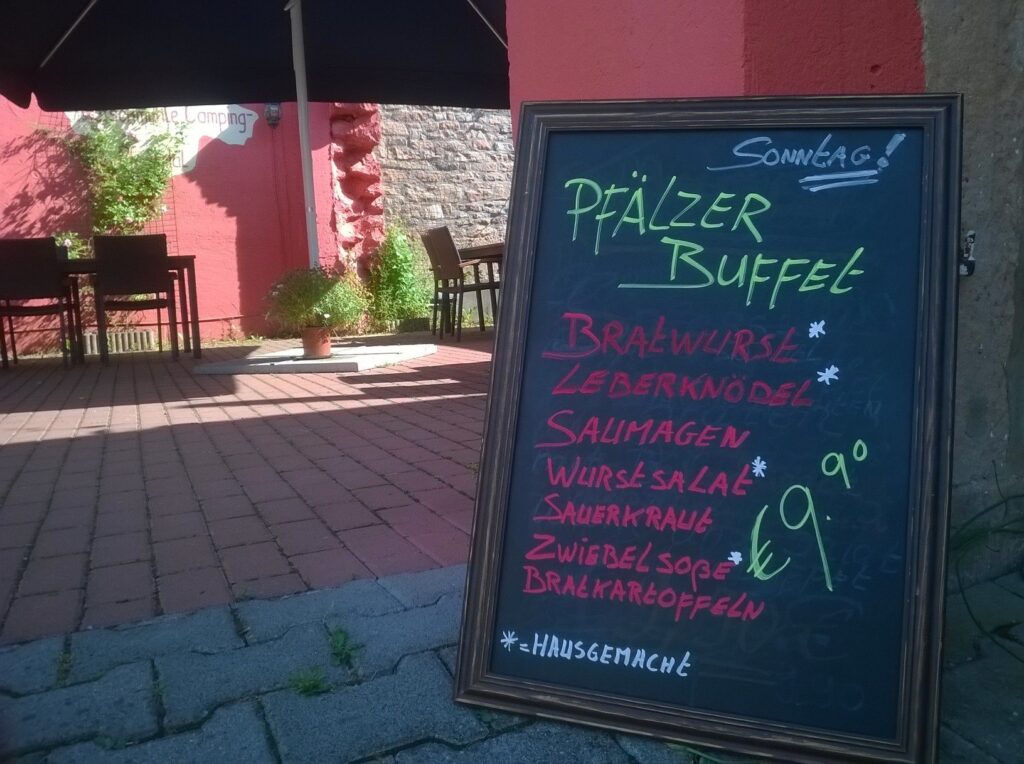 Camping-
SONNTAG!
PFÄLZER
BUFFET
BRATWURST*
LEBERKNÖDEL*
SAUMAGEN
WURSTSALAT*
SAUERKRAUT
ZWIEBELSOßE*
BRATKARTOFFELN
€ 9.90
*=HAUSGEMACHT